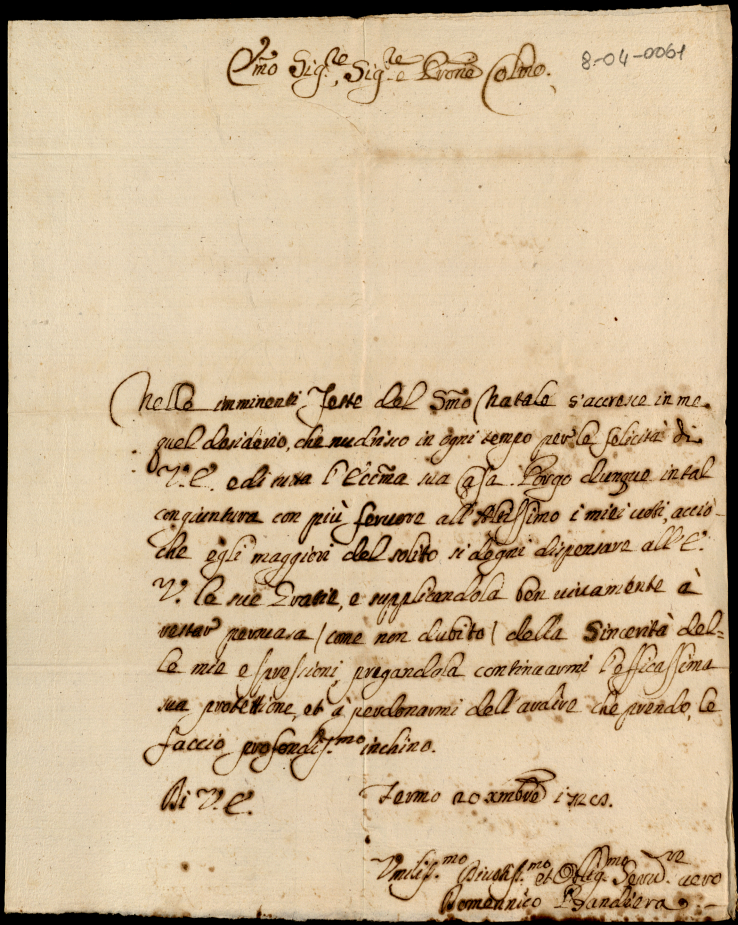 Emo Sig.re, Sig.re e Prone Colmo.
8-04-0061
Nelle imminenti Feste del Smo Natale s'accresce in me
quel desiderio, che nudrisco in ogni tempo per le felicità di
V. E. e di tutta l'Eccma sua Casa. Porgo dunque in tal
congiuntura con più fervore all'Altissimo i miei voti, acciò-
che egli maggiori del solito si degni dispensare all'E.
V. le sue Grazie, e supplicandola ben vivamente à
restar persuasa (come non dubito) della Sincerità del=
le mie espressioni, pregandola continuarmi l'efficassima
sua protettione, et à perdonarmi dell'ardire che prendo, le
faccio profondiss.mo inchino.
Di V. E. Fermo 20 xmbre
Umiliss.mo Divotiss.mo et Obblig.mo Servid.re vero
Domennico Bandiera